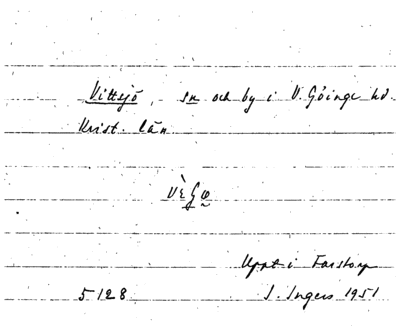 Vittsjö, sn och by i V. Göinge hd
Krist. län
Uppt i Farstorp
5128 I. Ingers 1951